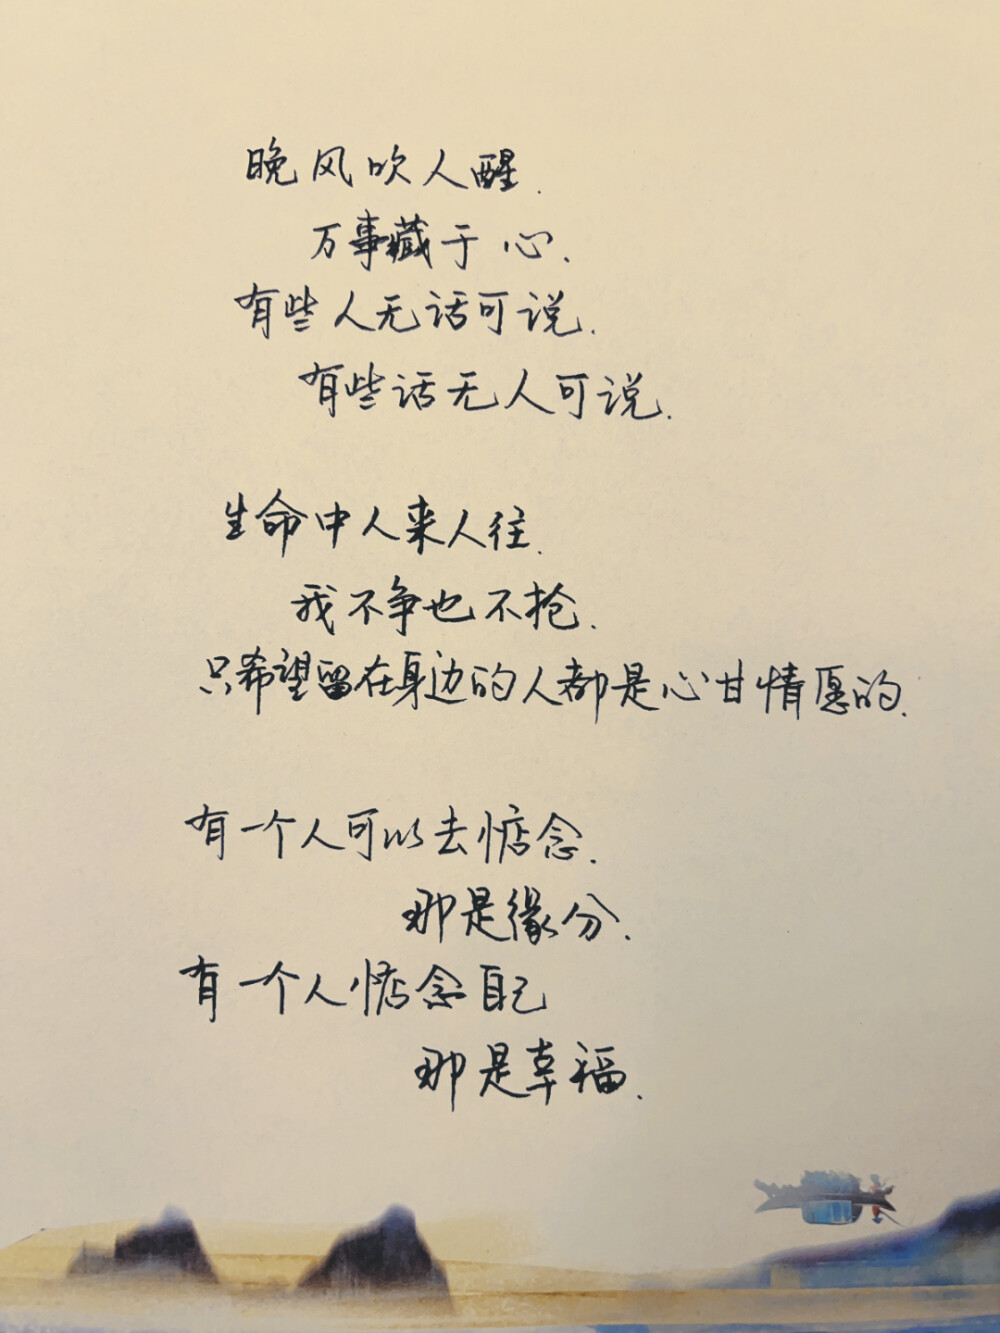 晚风吹人醒.
万事藏于心.
有些人无话可说.
有些话无人可说.
生命中人来人往.
我不争也不抢.
只希望留在身边的人都是心甘情愿的.
有一个人可以去惦念.
那是缘分.
有一个人惦念自己
那是幸福.